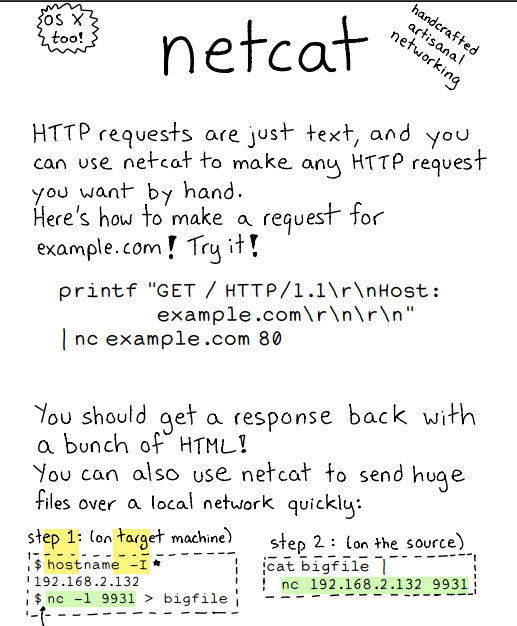 OS X
too!
netcat
handcrafted
artisanal
networking
HTTP requests are just text, and you
can use netcat to make any HTTP request
you want by hand.
Here's how to make a request for
example.com! Try it!
printf "GET / HTTP/1.1\r\nHost:
example.com\r\n\r\n"
| nc example.com 80
You should get a response back with
a bunch of HTML!
You can also use netcat to send huge
files over a local network quickly:
step 1: (on target machine)
$ hostname -I *
192.168.2.132
$ nc -l 9931 > bigfile
step 2: (on the source)
cat bigfile |
nc 192.168.2.132 9931